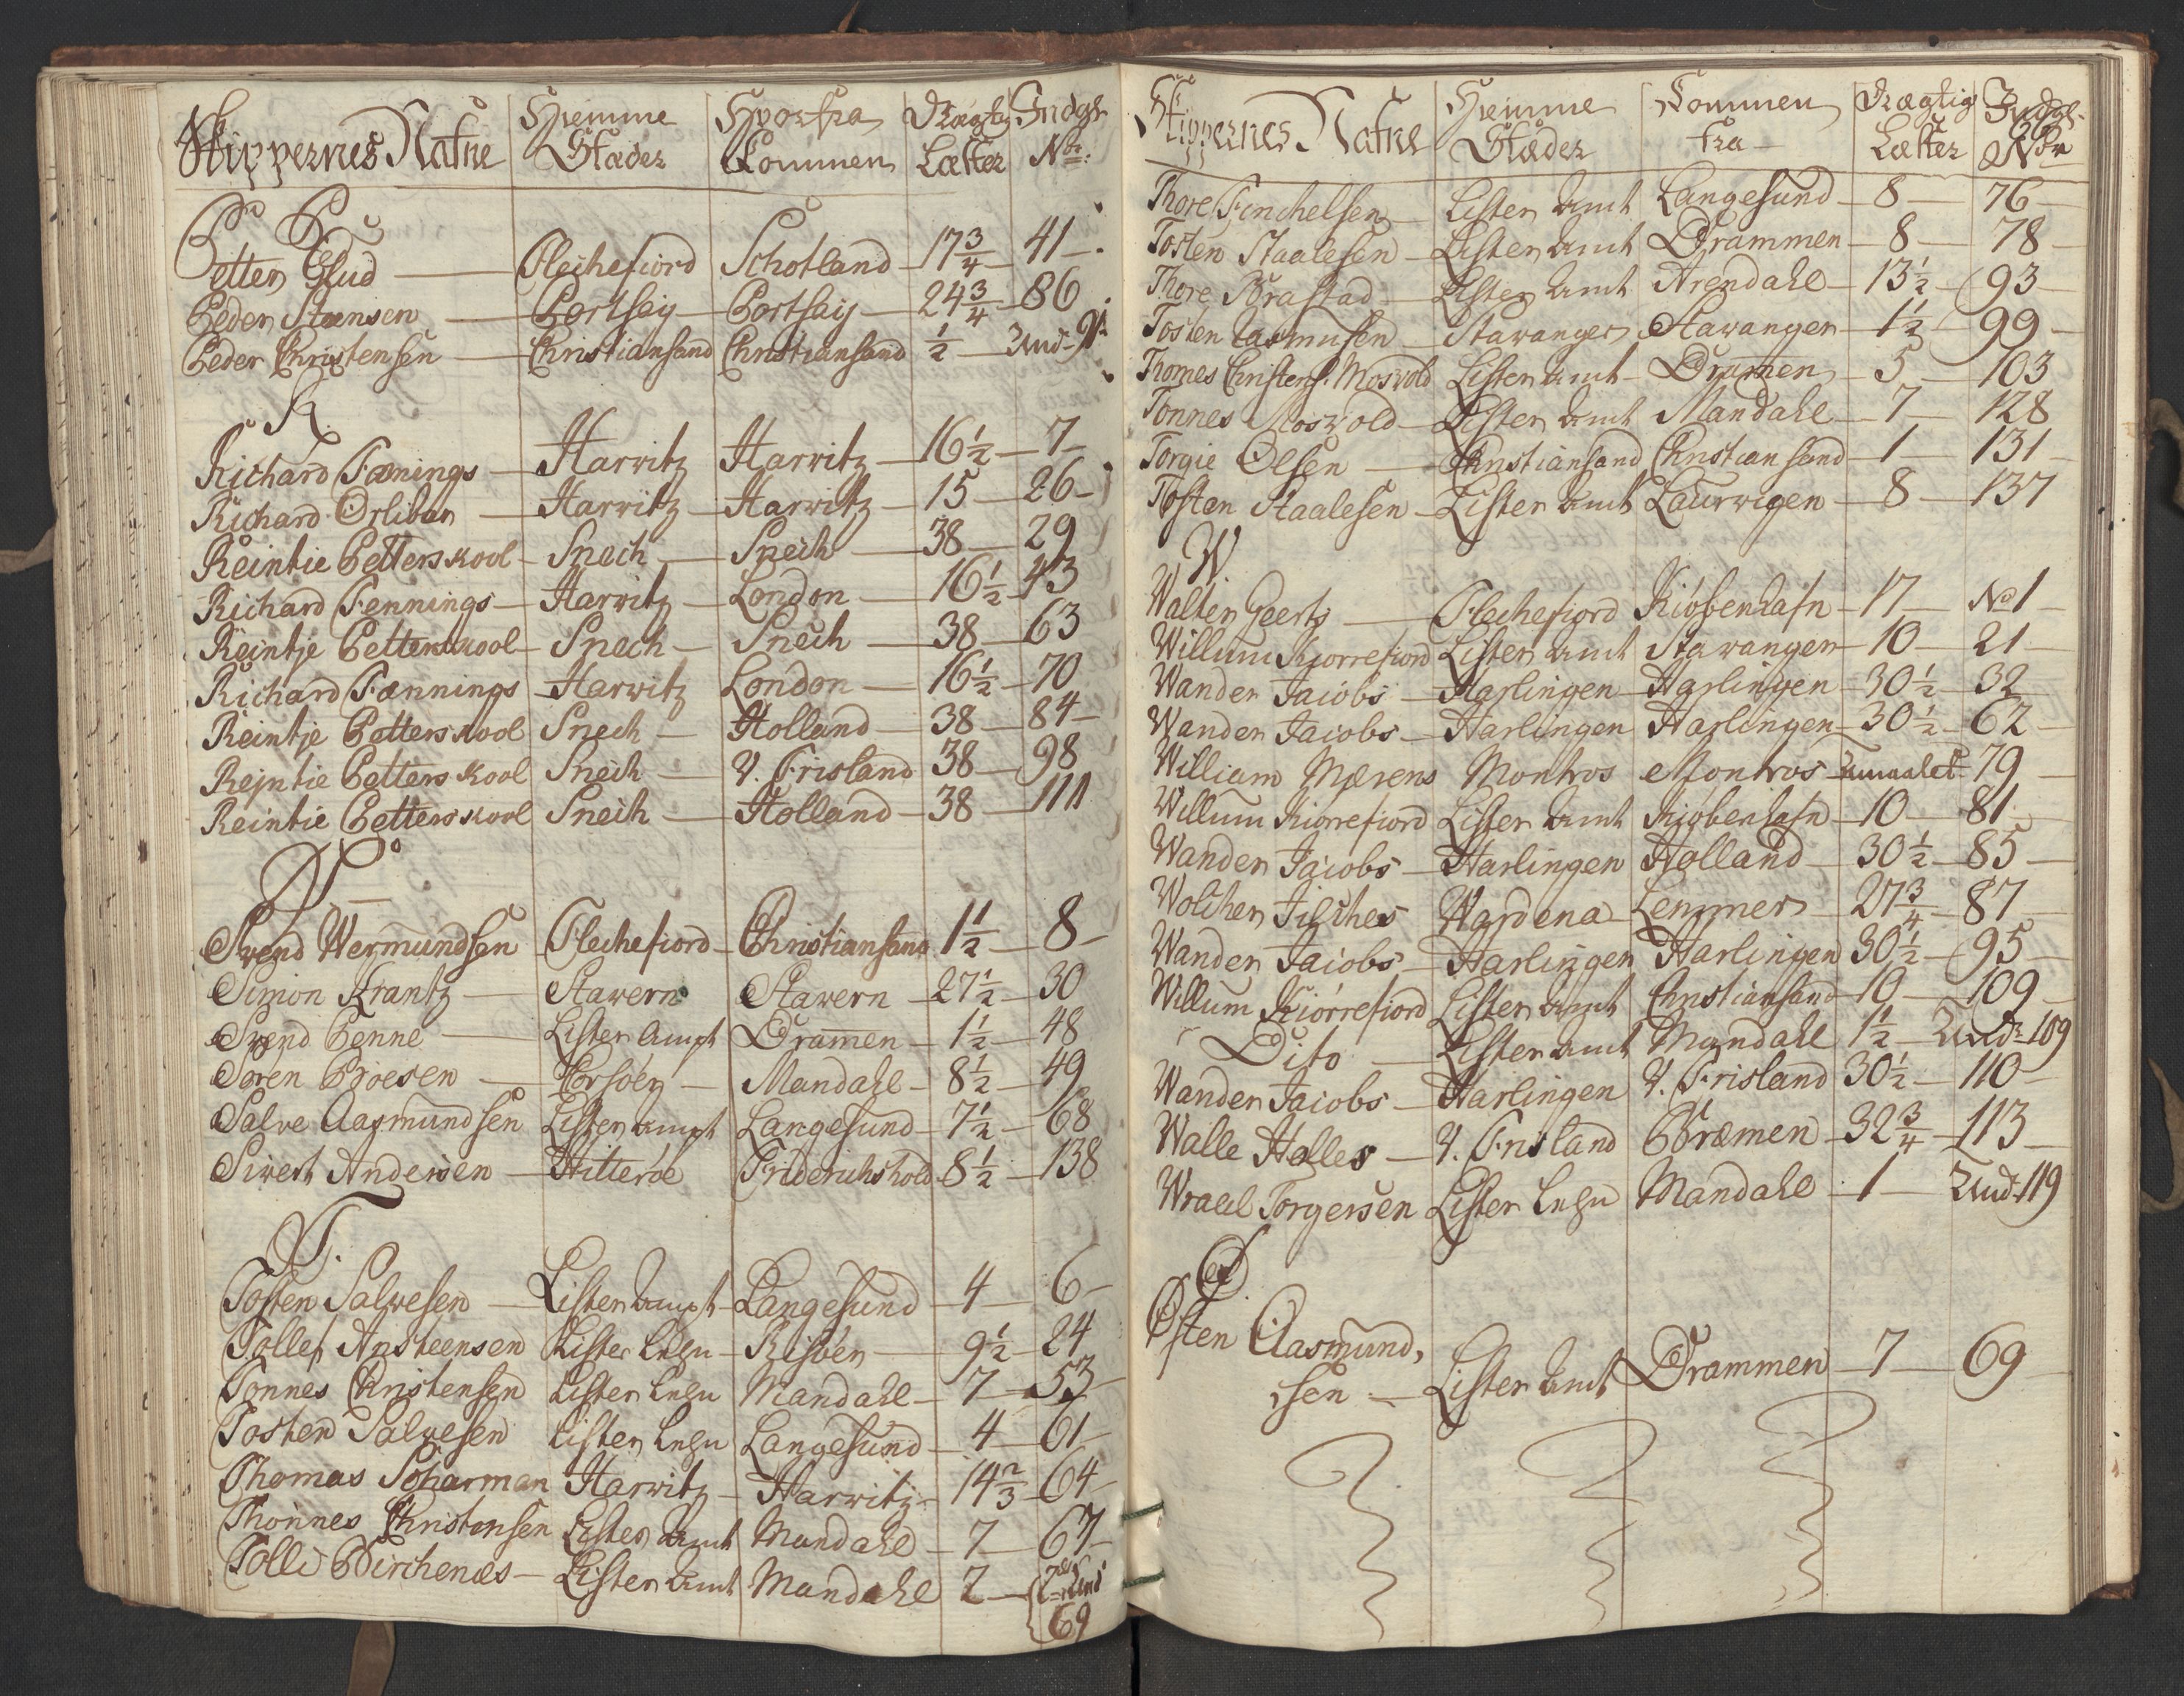 Skippernes Nafne Hiemme Stæder Hvorfra Kommen Drægtig Læster Indgl. No:
P
Petter Glud Flechefiord Schotland 17 3/4 41
Peder Steensen Portsøig Portsøig 24 3/4 86
Peder Christensen Christiansand Christiansand 1/2
R
Richard Fænnings Harwitz Harwitz 16 1/2 7
Richard Orlibar Harwitz Harwitz 15 26
Reintie Petters Kool Sneck Sneck 38 29
Richard Fennings Harwitz London 16 1/2 43
Reintje Petters Kool Sneck Sneck 38 63
Richard Fænnings Harwitz London 16 1/2 70
Reintje Petters Kool Sneck Holland 38 84
Rejntie Petters Kool Sneck V. Frisland 38 98
Reintie Petters Kool Sneck Holland 38 111
S
Svend Wermundsen Flechefiord Christiansand 1 1/2 8
Simon Krantz Stavern Stavern 27 1/2 30
Svend Penne Lister Ampt Dramen 1 1/2 48
Søren Broesen Korsöen Mandahl 8 1/2 49
Salve Aasmundsen Lister Ampt Langesund 7 1/2 68
Sivert Andersen Hitteröe Friderichshold 8 1/2 138
T.
Tosten Salvesen Lister Ampt Langesund 4 6
Tollef Ansteensen Lister Lehn Risöen 9 1/2 24
Tonnes Christensen Lister Lehn Mandahl 7 53
Tosten Salvesen Lister Lehn Langesund 4 61
Thomas Scharman Harwitz Harwitz 14 2/3 64
Thönnes Christensen Lister Amt Mandahl 7 67
Tolli Birchenæs Lister Amt Mandahl 2 69
Skippernes Nafne Hiemme Stæder Kommen fra Drægtig Læster Indgl. No
Thore Finchelsen Lister Amt Langesund 8 76
Tosten Staalesen Lister Amt Drammen 8 78
Thore Brastad Lister Amt Arendahl 13 1/2 93
Tosten Rasmusen Stavanger Stavanger 1 1/2 99
Thomes Christens. Mosvold Lister Amt Dramen 5 103
Tonnes Mosvold Lister Amt Mandahl 7 128
Torgie Olsen Christiansand Christiansand 1 131
Tosten Staalesen Lister Amt Laurvigen 8 137
W
Walter Geertz Flechefiord Kiöbenhafn 17 No 1
Willum Kiorrefiord Lister Amt Stavanger 10 21
Wander Jacobs Harlingen Harlingen 30 1/2 32
Wander Jacobs Harlingen Harlingen 30 1/2 62
William Mærens Montros Montros umaalet 79
Willum Kiorrefiord Lister Amt Kiöbenhafn 10 81
Wander Jacobs Harlingen Holland 30 1/2 85
Wolcher Jilches Wardena Lemmer 27 3/4 87
Wander Jacobs Harlingen Harlingen 30 1/2 95
Willum Kiörrefiord Lister Amt Christiansand 10 109
Dito Lister Amt Mandahl 1 1/2 109
Wander Jacobs Harlingen V. Frisland 30 1/2 110
Walle Halles V. Frisland Bræmen 32 3/4 113
Wraal Torgersen Lister Lehn Mandahl 1 119
Ø
Østen Aasmund,
sen Lister Amt Drammen 7 69